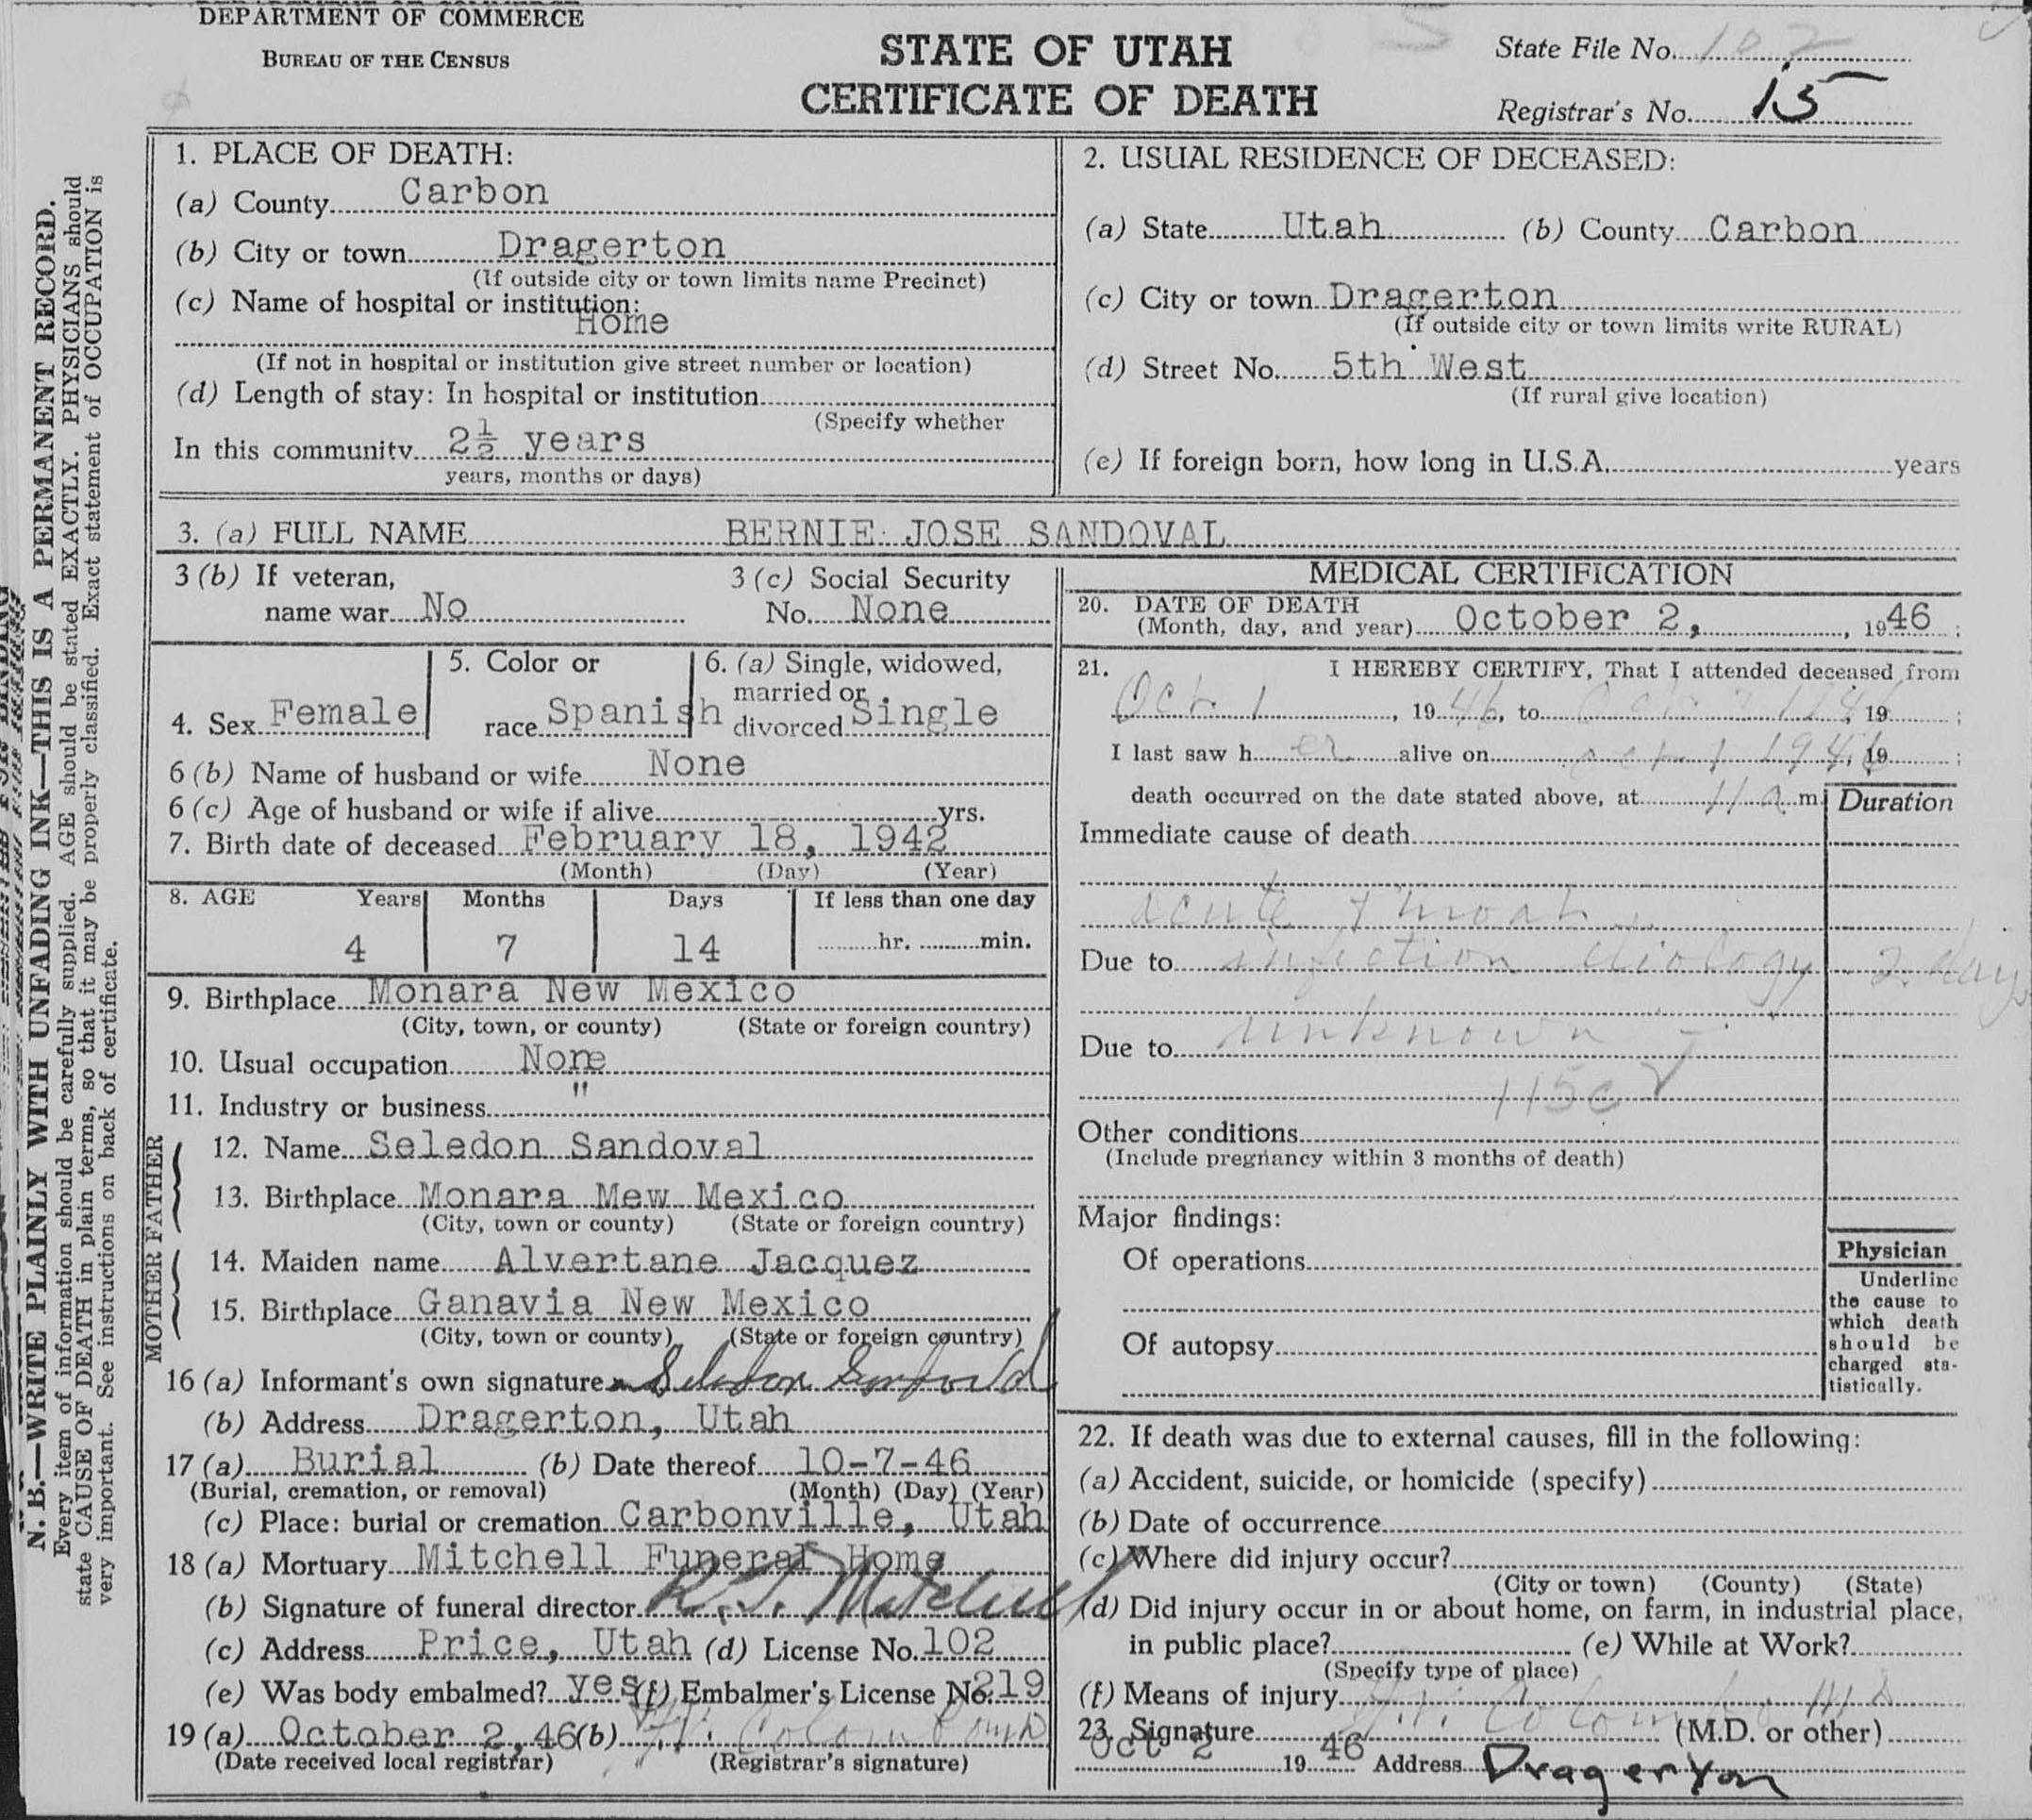 DEPARTMENT OF COMMERCE
BUREAU OF THE CENSUS
STATE OF UTAH
CERTIFICATE OF DEATH
State File No. 102
Registrar's No. 15
N. B.—WRITE PLAINLY WITH UNFADING INK—THIS IS A PERMANENT RECORD.
Every item of information should be carefully supplied. AGE should be stated EXACTLY. PHYSICIANS should
state CAUSE OF DEATH in plain terms, so that it may be properly classified. Exact statement of OCCUPATION is
very important. See instructions on back of certificate.
1. PLACE OF DEATH:
(a) County Carbon
(b) City or town Dragerton
(If outside city or town limits name Precinct)
(c) Name of hospital or institution:
Home
(If not in hospital or institution give street number or location)
(d) Length of stay: In hospital or institution
(Specify whether
In this community 2½ years
years, months or days)
2. USUAL RESIDENCE OF DECEASED:
(a) State Utah (b) County Carbon
(c) City or town Dragerton
(If outside city or town limits write RURAL)
(d) Street No. 5th West
(If rural give location)
(e) If foreign born, how long in U.S.A. years
3. (a) FULL NAME BERNIE JOSE SANDOVAL
3 (b) If veteran, 3 (c) Social Security
name war No No. None
4. Sex Female
5. Color or
race Spanish
6. (a) Single, widowed,
married or
divorced Single
6 (b) Name of husband or wife None
6 (c) Age of husband or wife if alive yrs.
7. Birth date of deceased February 18, 1942
(Month) (Day) (Year)
8. AGE Years Months Days If less than one day
4 7 14 hr. min.
9. Birthplace Monara New Mexico
(City, town, or county) (State or foreign country)
10. Usual occupation None
11. Industry or business "
FATHER
12. Name Seledon Sandoval
13. Birthplace Monara Mew Mexico
(City, town or county) (State or foreign country)
MOTHER
14. Maiden name Alvertane Jacquez
15. Birthplace Ganavia New Mexico
(City, town or county) (State or foreign country)
16 (a) Informant's own signature Seledon Sandoval
(b) Address Dragerton, Utah
17 (a) Burial (b) Date thereof 10-7-46
(Burial, cremation, or removal) (Month) (Day) (Year)
(c) Place: burial or cremation Carbonville, Utah
18 (a) Mortuary Mitchell Funeral Home
(b) Signature of funeral director Mitchell
(c) Address Price, Utah (d) License No. 102
(e) Was body embalmed? yes (f) Embalmer's License No. 219
19 (a) October 2, 46 (b)
(Date received local registrar) (Registrar's signature)
MEDICAL CERTIFICATION
20. DATE OF DEATH
(Month, day, and year) October 2, 1946;
21. I HEREBY CERTIFY, That I attended deceased from
Oct 1, 1946, to Oct 1946, 19 ;
I last saw her alive on Oct 1 1946, 19 ;
death occurred on the date stated above, at 11 a m.
Duration
Immediate cause of death
acute throat
Due to infection etiology 2 days
Due to unknown
115c
Other conditions
(Include pregnancy within 3 months of death)
Major findings:
Of operations
Of autopsy
Physician
Underline
the cause to
which death
should be
charged sta-
tistically.
22. If death was due to external causes, fill in the following:
(a) Accident, suicide, or homicide (specify)
(b) Date of occurrence
(c) Where did injury occur?
(City or town) (County) (State)
(d) Did injury occur in or about home, on farm, in industrial place,
in public place? (e) While at Work?
(Specify type of place)
(f) Means of injury
23. Signature (M.D. or other)
Oct 2 1946 Address Dragerton